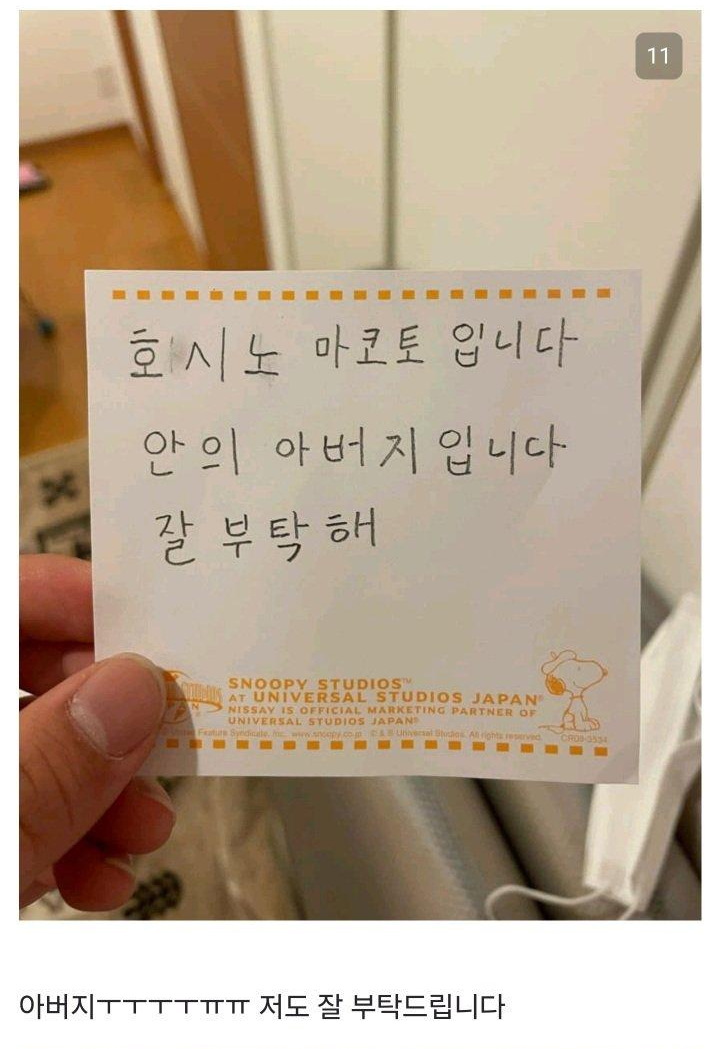 11
호시노 마코토 입니다
안의 아버지입니다
잘 부탁해
SNOOPY STUDIOS™
AT UNIVERSAL STUDIOS JAPAN®
NISSAY IS OFFICIAL MARKETING PARTNER OF
UNIVERSAL STUDIOS JAPAN®
Feature Syndicate, Inc. www.snoopy.co.jp © & ® Universal Studios. All rights reserved. CR09-3534
아버지ㅜㅜㅜㅜㅠㅠ 저도 잘 부탁드립니다